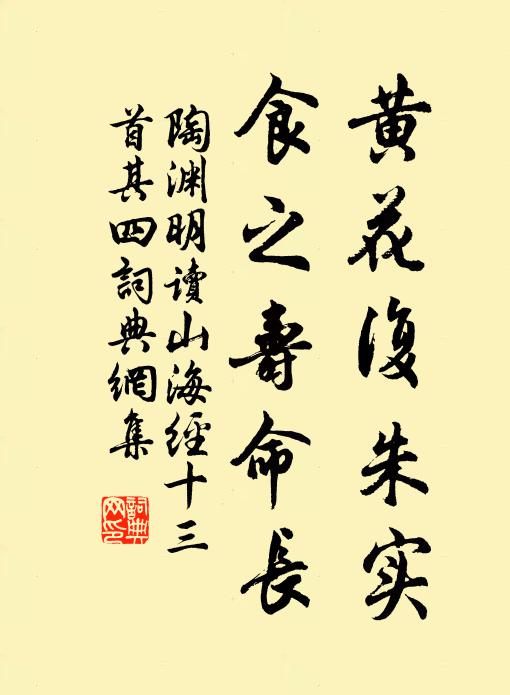 黄花復朱实
食之壽命長
陶渊明讀山海經十三
首其四詞典網集
詞典
网印